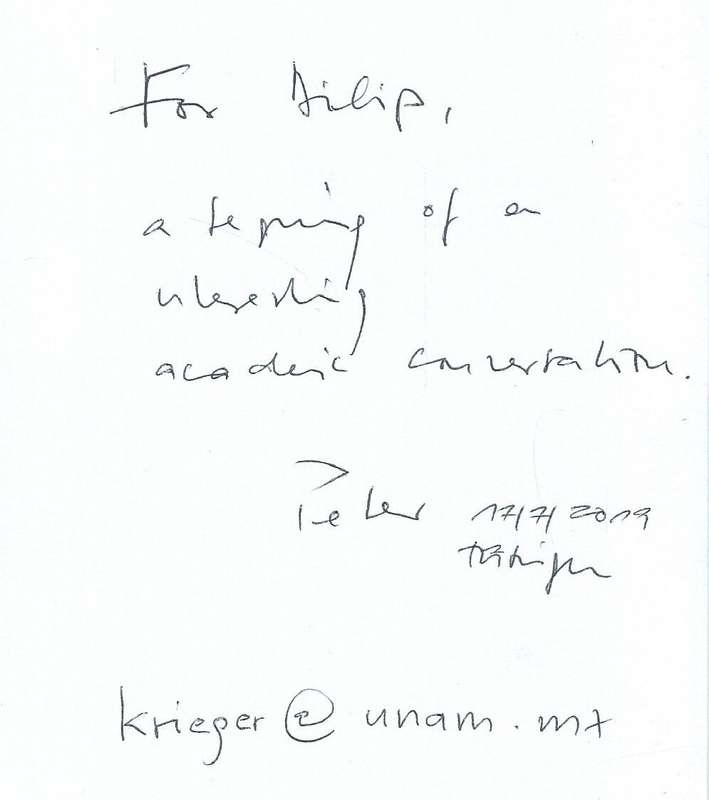 For Dilip,
a beginning of an
interesting
academic conversation.
Peter 17/7/2019
krieger@unam.mx